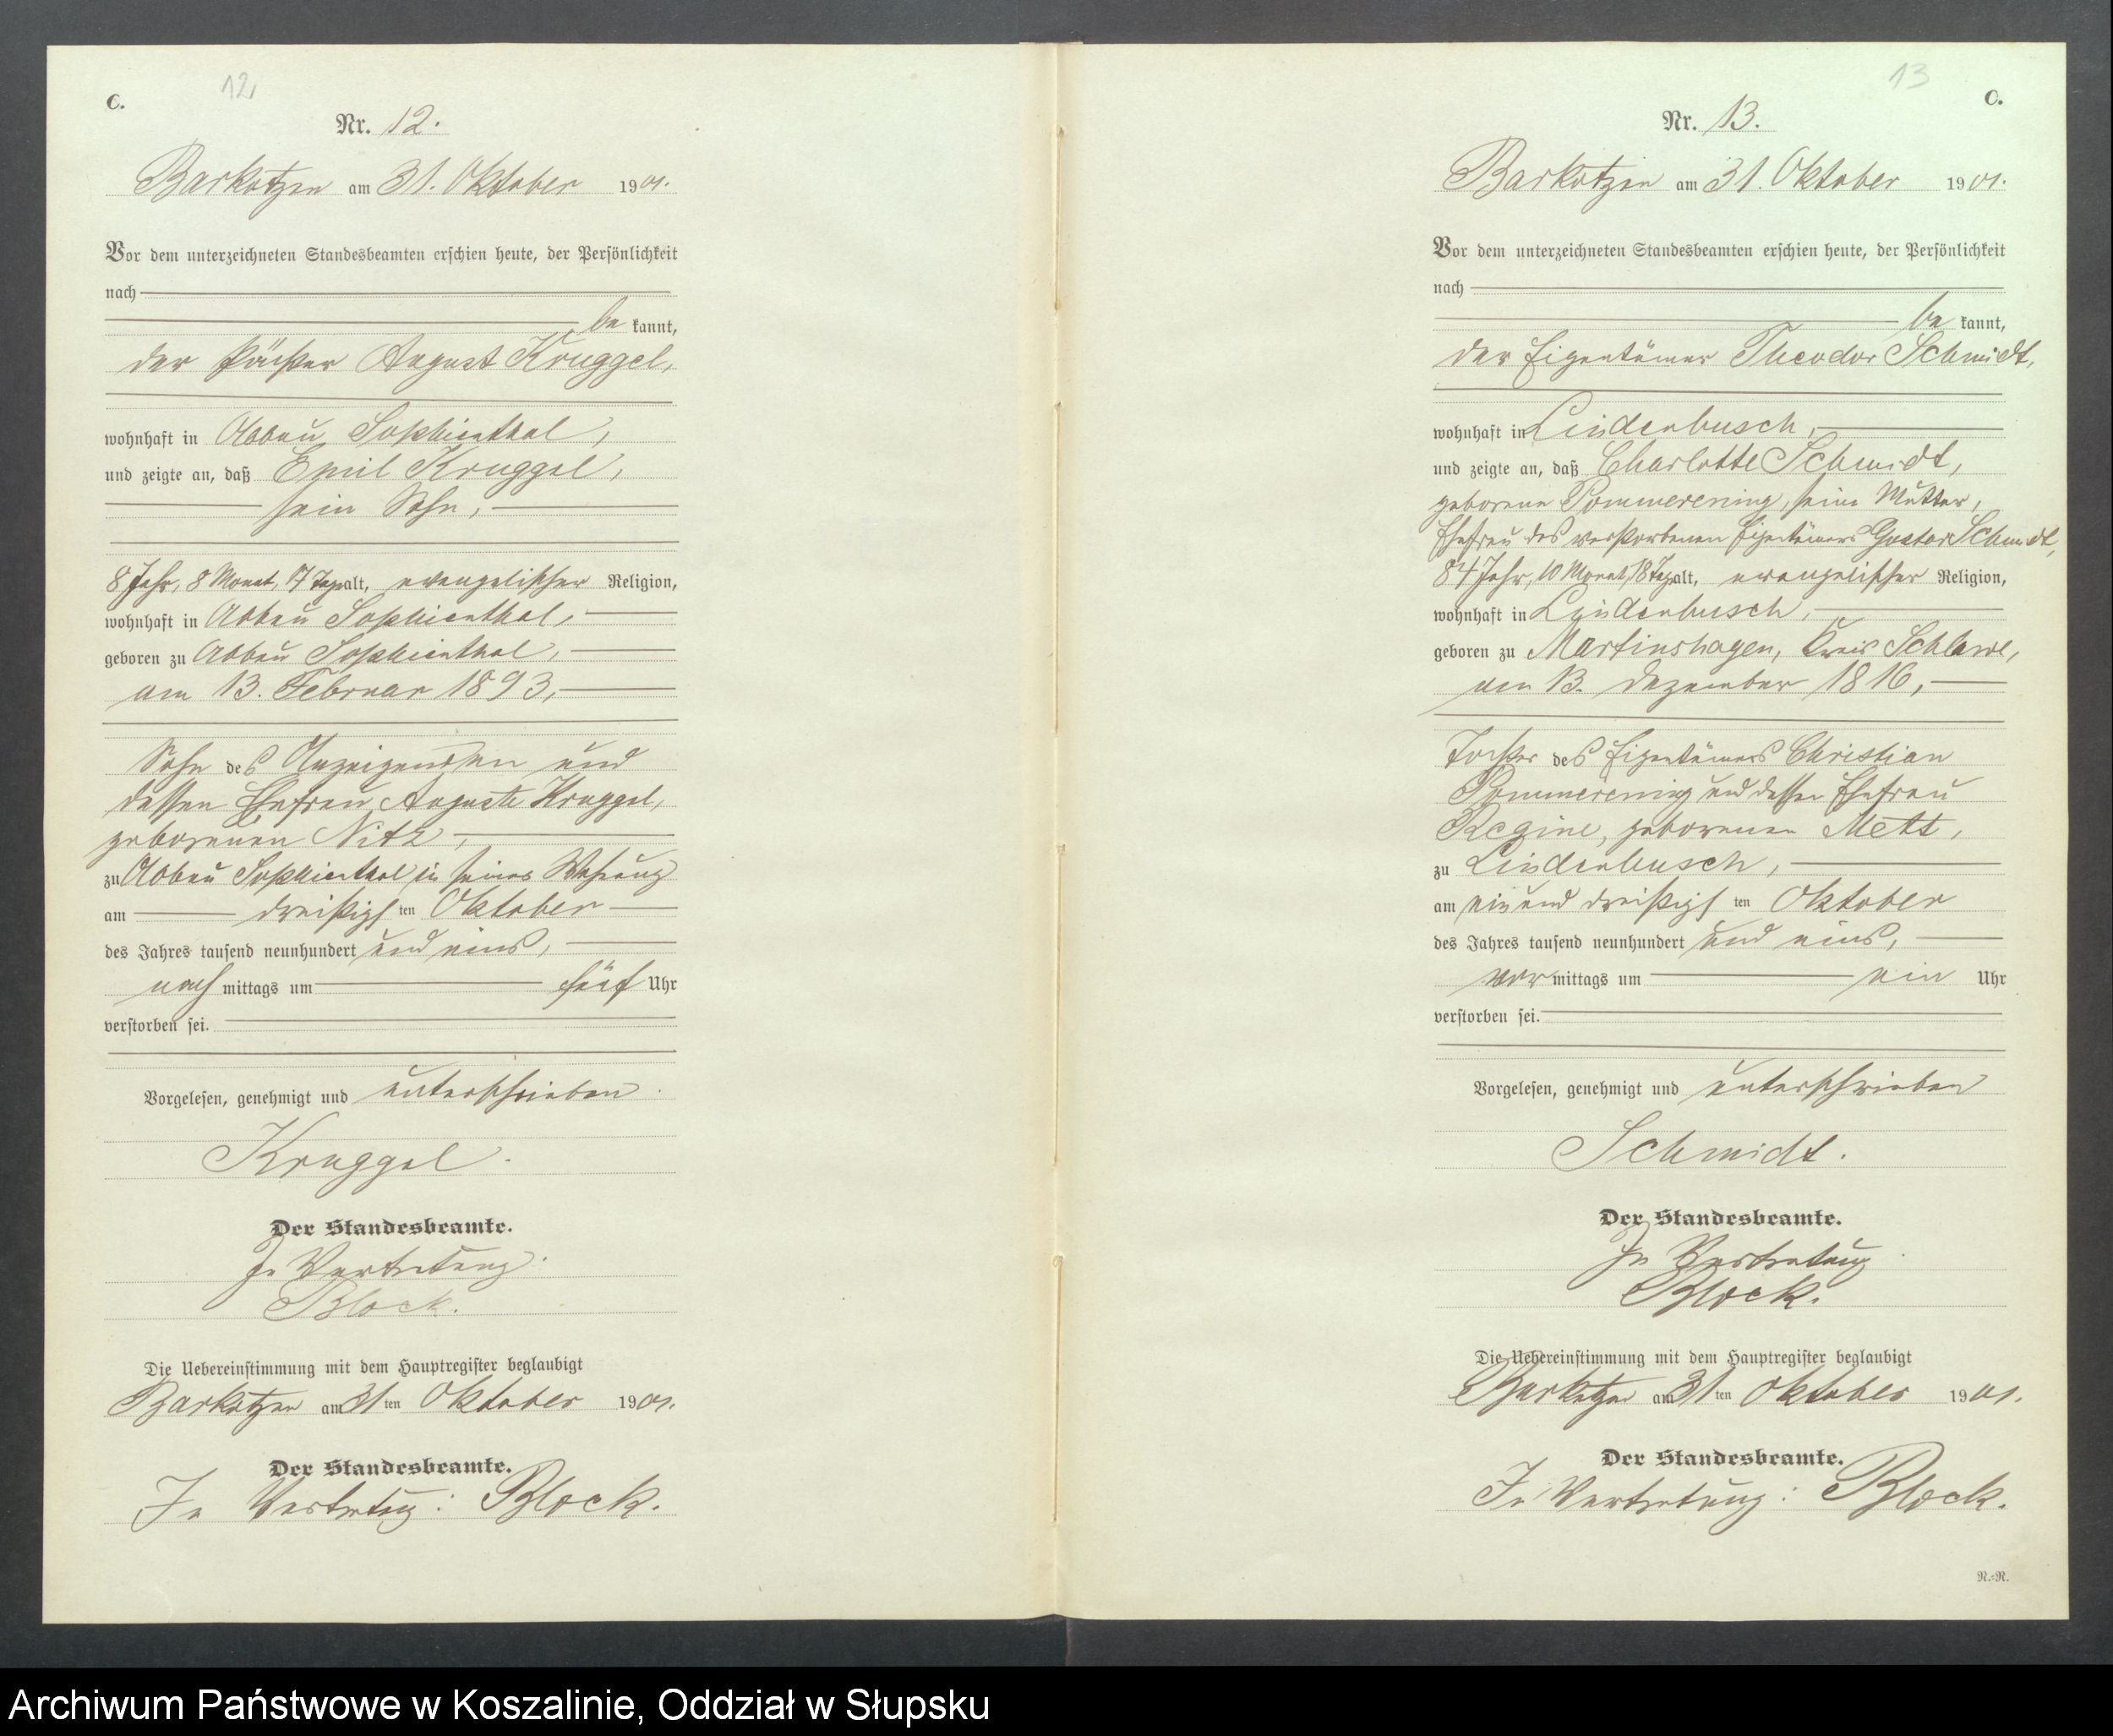 C.
12
Nr. 12.
Barkotzen am 31. Oktober 1901.
Vor dem unterzeichneten Standesbeamten erschien heute, der Persönlichkeit
nach
be kannt,
der Pächter August Kruggel,
wohnhaft in Abbau Sophienthal,
und zeigte an, daß Emil Kruggel,
sein Sohn,
8 Jahr, 8 Monat, 17 Tage alt, evangelischer Religion,
wohnhaft in Abbau Sophienthal,
geboren zu Abbau Sophienthal,
am 13. Februar 1893,
Sohn des Anzeigenden und
dessen Ehefrau Auguste Kruggel,
geborenen Nitz,
zu Abbau Sophienthal in seiner Wohnung
am dreißigsten Oktober
des Jahres tausend neunhundert und eins,
nachmittags um fünf Uhr
verstorben sei.
Vorgelesen, genehmigt und unterschrieben.
Kruggel.
Der Standesbeamte.
In Vertretung.
Block.
Die Uebereinstimmung mit dem Hauptregister beglaubigt
Barkotzen am 31ten Oktober 1901.
Der Standesbeamte.
In Vertretung: Block.
13
C.
Nr. 13.
Barkotzen am 31. Oktober 1901.
Vor dem unterzeichneten Standesbeamten erschien heute, der Persönlichkeit
nach
be kannt,
der Eigentümer Theodor Schmidt,
wohnhaft in Lindenbusch,
und zeigte an, daß Charlotte Schmidt,
geborene Pommerening, seine Mutter,
Ehefrau des verstorbenen Eigentümers Gustav Schmidt,
84 Jahr, 10 Monat, 18 Tage alt, evangelischer Religion,
wohnhaft in Lindenbusch,
geboren zu Martinshagen, Kreis Schlawe,
am 13. Dezember 1816,
Tochter des Eigentümers Christian
Pommerening und dessen Ehefrau
Regine, geborenen Mett,
zu Lindenbusch,
am ein und dreißigsten Oktober
des Jahres tausend neunhundert und eins,
vormittags um ein Uhr
verstorben sei.
Vorgelesen, genehmigt und unterschrieben
Schmidt.
Der Standesbeamte.
In Vertretung
Block.
Die Uebereinstimmung mit dem Hauptregister beglaubigt
Barkotzen am 31ten Oktober 1901.
Der Standesbeamte.
In Vertretung: Block.
N.-N.
Archiwum Państwowe w Koszalinie, Oddział w Słupsku